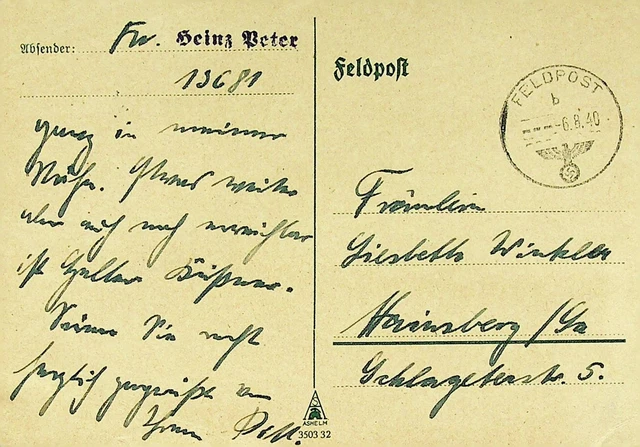 Absender: Fw. Heinz Peter
13681
ganz in meiner
Nähe. Etwas weiter
aber auch noch erreichbar
ist
Seien Sie recht
herzlich gegrüßt von
Ihrem
Feldpost
FELDPOST
b
-6.8.40
Fräulein
Liesbeth Winkler
Hainsberg/Sa
Schlageterstr. 5.
ASHELM
3503 32